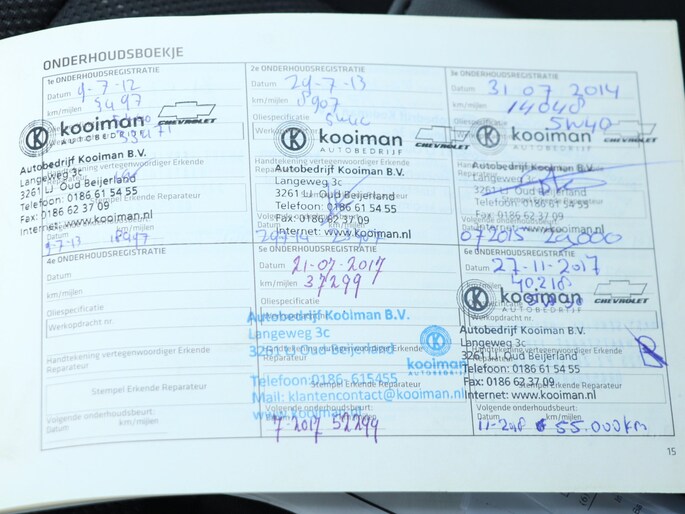 ONDERHOUDSBOEKJE
1e ONDERHOUDSREGISTRATIE
Datum 9-7-12
km/mijlen 3497
kooiman
AUTOBEDRIJF
CHEVROLET
Autobedrijf Kooiman B.V.
Langeweg 3c
3261 LJ Oud Beijerland
Telefoon: 0186 61 54 55
Fax: 0186 62 37 09
Internet: www.kooiman.nl
9-7-13 18497
2e ONDERHOUDSREGISTRATIE
Datum 29-7-13
km/mijlen 8907
Oliespecificatie 5W40
kooiman
AUTOBEDRIJF
CHEVROLET
Handtekening vertegenwoordiger Erkende
Autobedrijf Kooiman B.V.
Langeweg 3c
3261 LJ Oud Beijerland
Telefoon: 0186 61 54 55
Fax: 0186 62 37 09
Internet: www.kooiman.nl
3e ONDERHOUDSREGISTRATIE
Datum 31 07 2014
km/mijlen 14048
Oliespecificatie 5W40
kooiman
AUTOBEDRIJF
CHEVROLET
Autobedrijf Kooiman B.V.
Langeweg 3c
3261 LJ Oud Beijerland
Telefoon: 0186 61 54 55
Fax: 0186 62 37 09
Internet: www.kooiman.nl
07 2015 29000
4e ONDERHOUDSREGISTRATIE
Datum
km/mijlen
Oliespecificatie
Werkopdracht nr.
Handtekening vertegenwoordiger Erkende
Reparateur
Stempel Erkende Reparateur
Volgende onderhoudsbeurt:
Datum km/mijlen
5e ONDERHOUDSREGISTRATIE
Datum 21-07-2017
km/mijlen 37299
Oliespecificatie
Autobedrijf Kooiman B.V.
Langeweg 3c
3261 LJ Oud Beijerland
kooiman
AUTOBEDRIJF
Telefoon: 0186 - 615455
Mail: klantencontact@kooiman.nl
www.kooiman.nl
Volgende onderhoudsbeurt:
7-2017 52299
6e ONDERHOUDSREGISTRATIE
Datum 27-11-2017
km/mijlen 40.218
kooiman
AUTOBEDRIJF
CHEVROLET
Autobedrijf Kooiman B.V.
Langeweg 3c
3261 LJ Oud Beijerland
Telefoon: 0186 61 54 55
Fax: 0186 62 37 09
Internet: www.kooiman.nl
Volgende onderhoudsbeurt:
55.000km
15